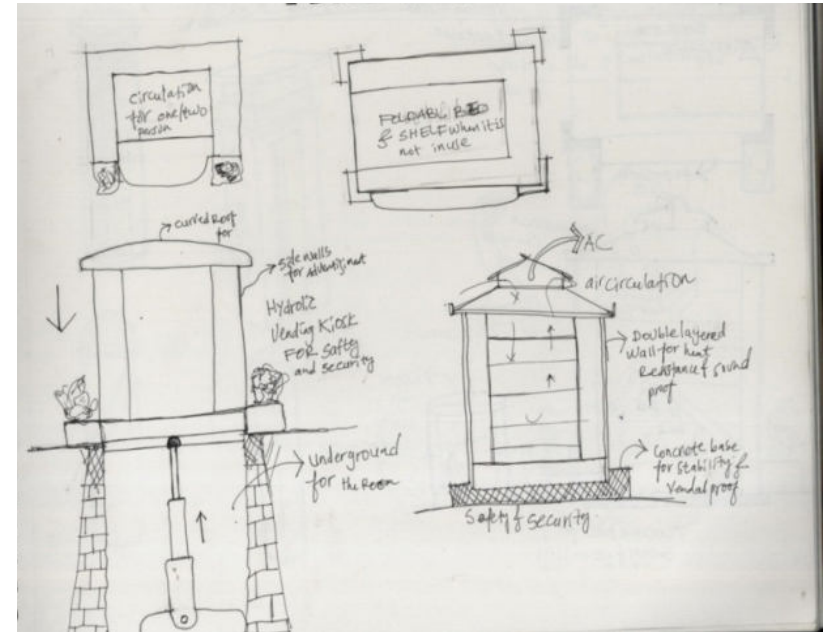 circulation
for one/two
person
FOLDABL BED
& SHELF when it is
not in use
curved Roof
for
side walls
for
Hydroliz
Vending Kiosk
FOR Safty
and security
Underground
for the Room
AC
air circulation
Double layered
wall for heat
Resistance & sound
proof
Concrete base
for stability &
Vendal proof
Safety & security